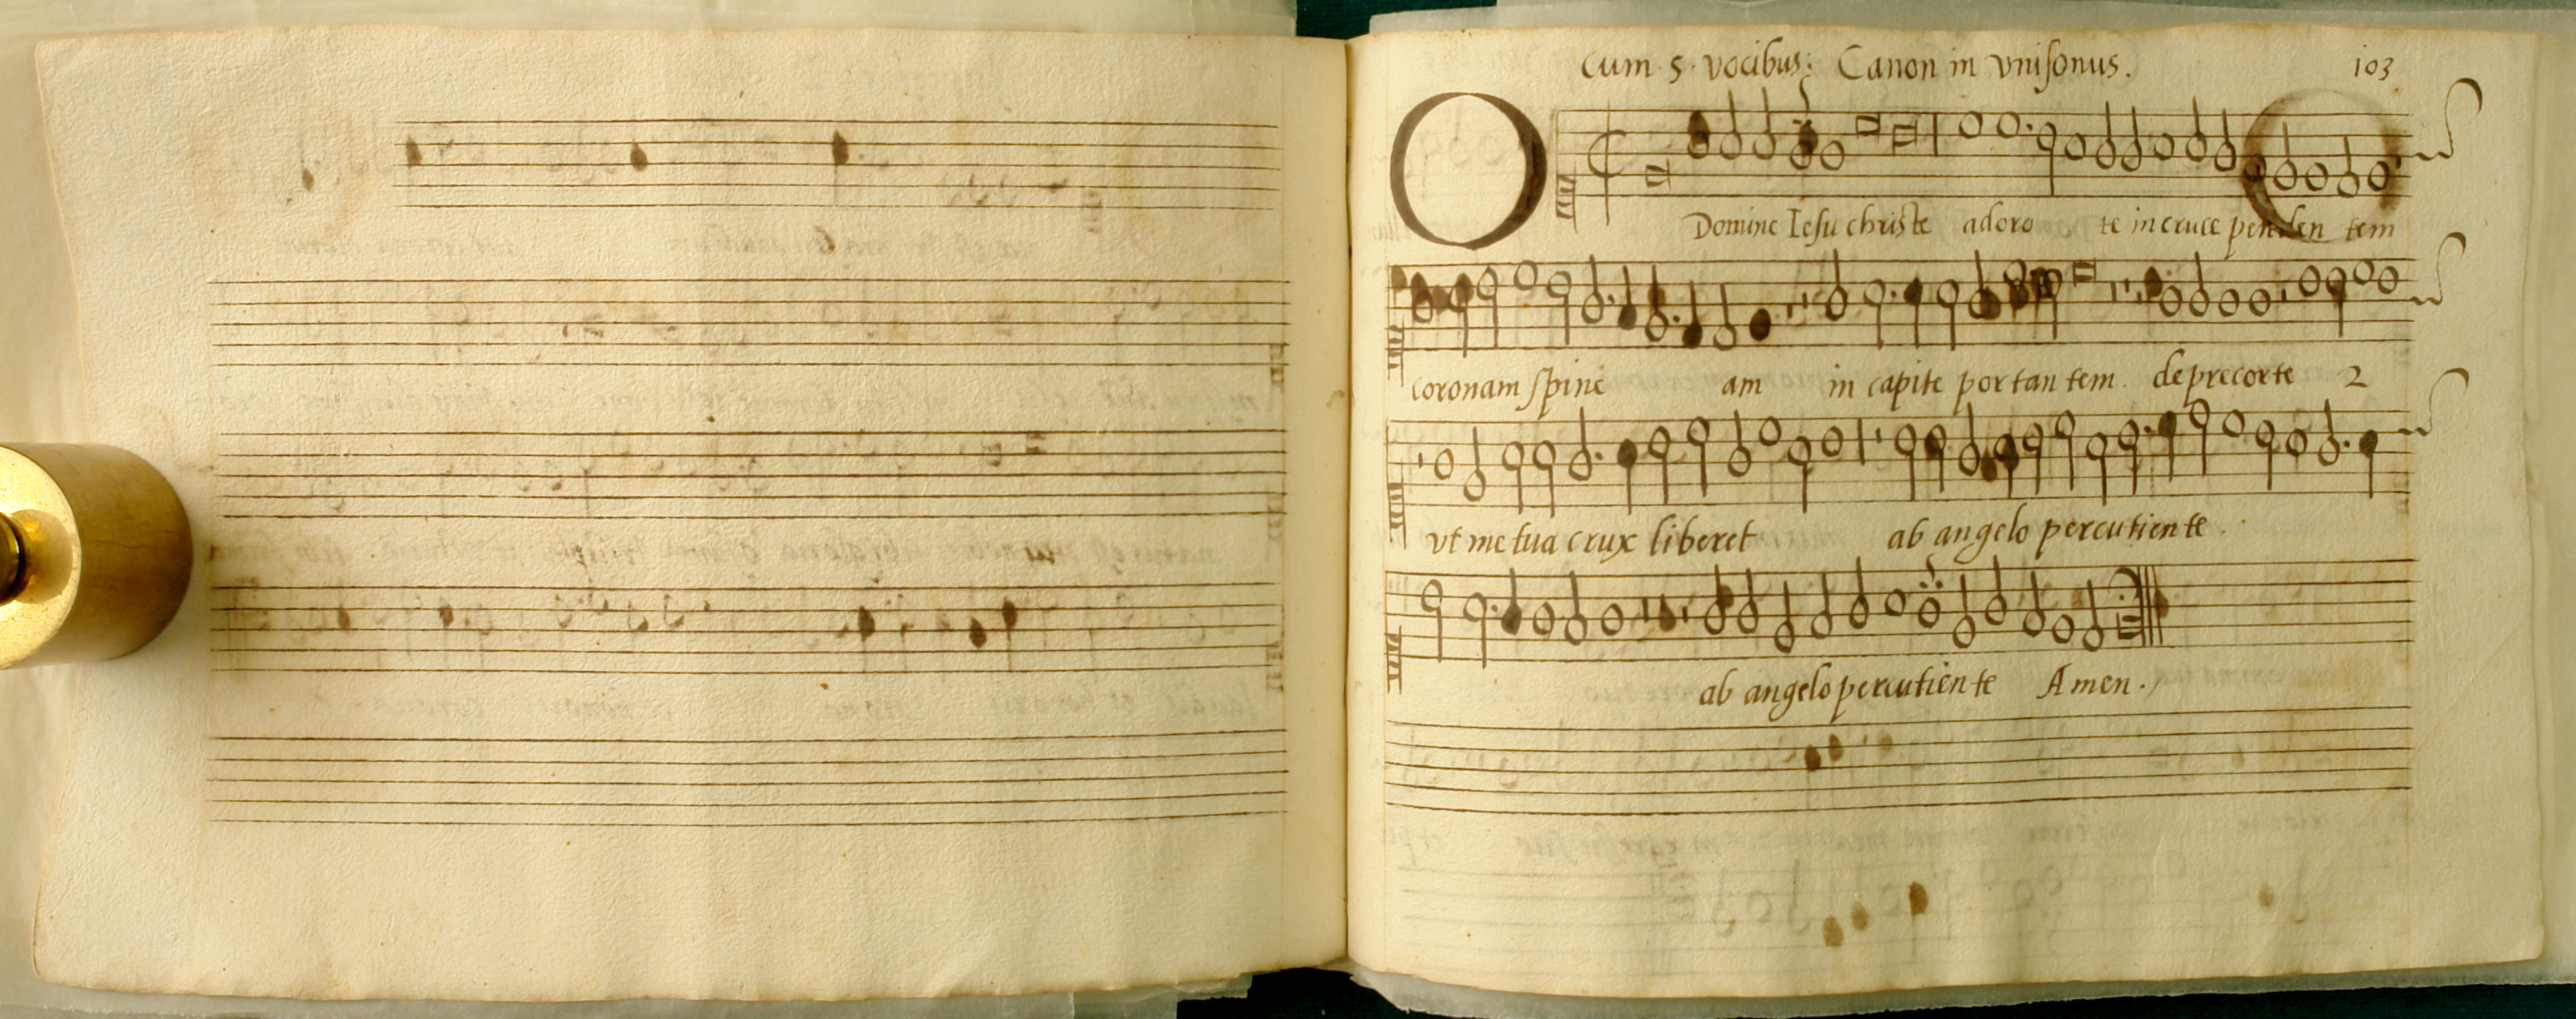 Cum · 5 · vocibus: Canon in vnisonus. 103
O Domine Iesu christe adoro te in cruce penden tem
coronam spine am in capite portan tem. deprecorte 2
vt me tua crux liberet ab angelo percutiente.
ab angelo percutiente Amen.